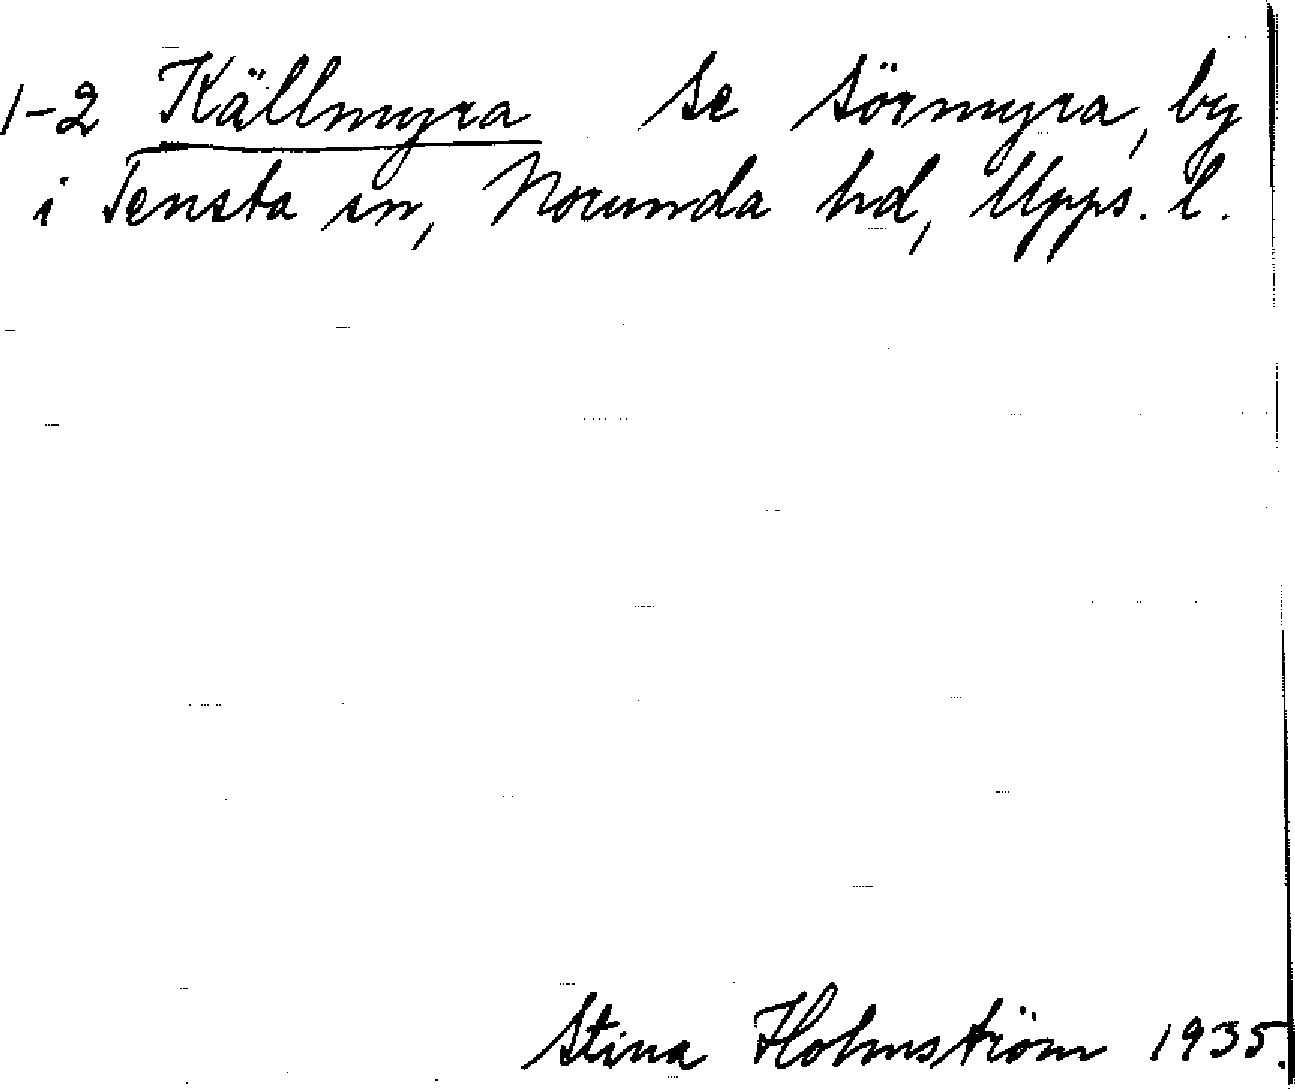 1-2 Källmyra se Sörmyra, by
i Tensta sn, Norunda hd, Upps. l.
Stina Holmström 1935.